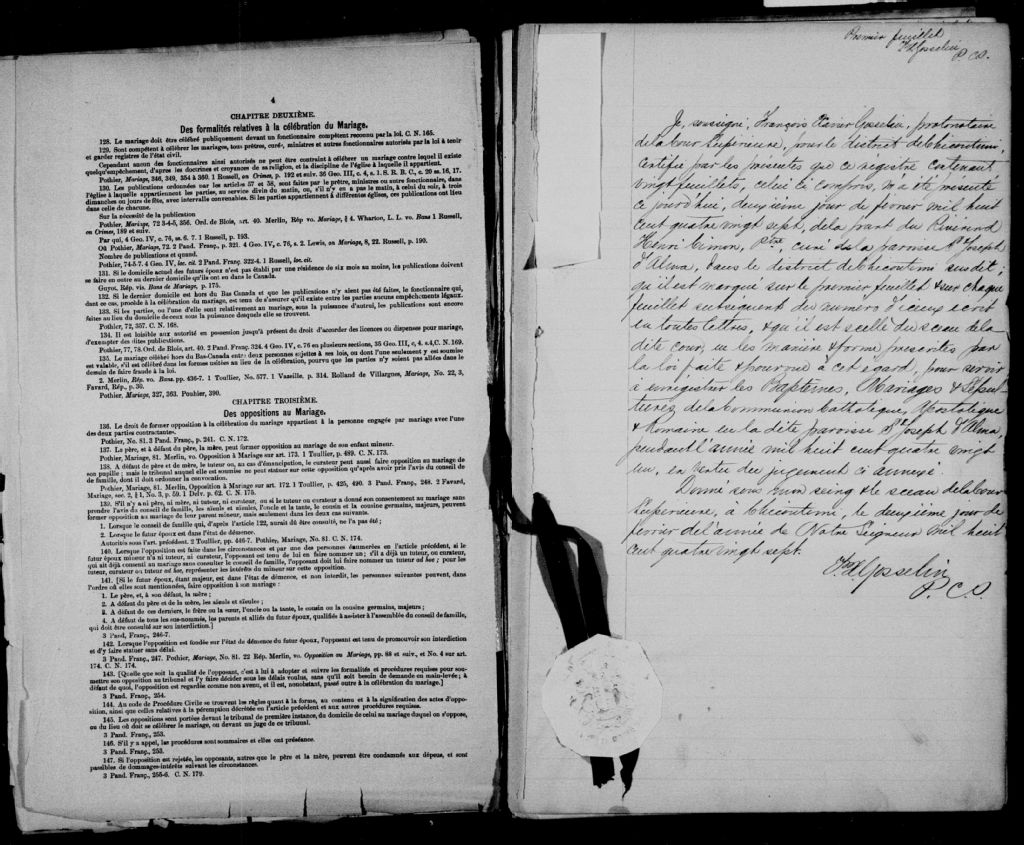 4
CHAPITRE DEUXIÈME.
Des formalités relatives à la célébration du Mariage.
128. Le mariage doit être célébré publiquement devant un fonctionnaire compétent reconnu par la loi. C. N. 165.
129. Sont compétent à célébrer les mariages, tous prêtres, curé, ministres et autres fonctionnaires autorisés par la loi à tenir
et garder registres de l'état civil.
Cependant aucun des fonctionnaires ainsi autorisés ne peut être contraint à célébrer un mariage contre lequel il existe
quelqu'empêchement, d'après les doctrines et croyances de sa religion, et la discipline de l'église à laquelle il appartient.
Pothier, Mariage, 346, 349, 354 à 360. 1 Russell, on Crimes, p. 192 et suiv. 35 Geo. III, c. 4, s. 1. S. R. B. C., c. 20 ss. 16, 17.
130. Les publications ordonnées par les articles 57 et 58, sont faites par le prêtre, ministre ou autre fonctionnaire, dans
l'église à laquelle appartiennent les parties, au service divin du matin, ou, s'il n'y en a pas le matin, à celui du soir, à trois
dimanches ou jours de fête, avec intervalles convenables. Si les parties appartiennent à différentes églises, ces publications ont lieu
dans celle de chacune.
Sur la nécessité de la publication
Pothier, Mariage, 72 3-4-5, 356. Ord. de Blois, art. 40. Merlin, Rép vo. Mariage, § 4. Wharton, L. L. vo. Bans 1 Russell,
on Crimes, 189 et suiv.
Par qui, 4 Geo. IV, c. 76, ss. 6. 7. 1 Russell, p. 193.
Où Pothier, Mariage, 72. 2 Pand. Franç., p. 321. 4 Geo. IV, c. 76, s. 2. Lewis, on Mariage, 8, 22. Russell, p. 190.
Nombre de publications et quand.
Pothier, 74-5-7. 4 Geo. IV, loc. cit. 2 Pand. Franç. 322-4. 1 Russell, loc. cit.
131. Si le domicile actuel des futurs époux n'est pas établi par une résidence de six mois au moins, les publications doivent
se faire en outre au dernier domicile qu'ils ont eu dans le Canada.
Guyot. Rép. vis. Bans de Mariage, p. 175.
132. Si le dernier domicile est hors du Bas Canada et que les publications n'y aient pas été faites, le fonctionnaire qui,
dans ce cas, procède à la célébration du mariage, est tenu de s'assurer qu'il existe entre les parties aucuns empêchements légaux.
133. Si les parties, ou l'une d'elle sont relativement au mariage, sous la puissance d'autrui, les publications sont encore
faites au lieu du domicile de ceux sous la puissance desquels elle se trouvent.
Pothier, 72, 357. C. N. 168.
134. Il est loisible aux autorité en possession jusqu'à présent du droit d'accorder des licences ou dispenses pour mariage,
d'exempter des dites publications.
Pothier, 77, 78. Ord. de Blois, art. 40. 2 Pand. Franç. 324. 4 Geo. IV, c. 76 en plusieurs sections, 35 Geo. III, c. 4. s. 4, C. N. 169.
135. Le mariage célébré hors du Bas-Canada entre deux personnes sujettes à ses lois, ou dont l'une seulement y est soumise
est valable, s'il est célébré dans les formes usitées au lieu de la célébration, pourvu que les parties n'y soient pas allées dans le
dessein de faire fraude à la loi.
2. Merlin, Rép. vo. Bans. pp. 436-7. 1 Toullier, No. 577. 1 Vazeille, p. 314. Rolland de Villargues, Mariage, No. 22, 3,
Favard, Rép., p. 30.
Pothier, Mariage, 327, 363. Pouhier, 390.
CHAPITRE TROISIÈME.
Des oppositions au Mariage.
136. Le droit de former opposition à la célébration du mariage appartient à la personne engagée par mariage avec l'une
des deux parties contractantes.
Pothier, No. 81. 3 Pand. Franç., p. 241. C. N. 172.
137. Le père, et à défaut du père, la mère, peut former opposition au mariage de son enfant mineur.
Pothier, Mariage, 81. Merlin, vo. Opposition à Mariage sur art. 173. 1 Toullier, p. 489. C. N. 173.
138. A défaut de père et de mère, le tuteur ou, au cas d'émancipation, le curateur peut aussi faire opposition au mariage de
son pupille; mais le tribunal auquel elle est soumise ne peut statuer sur cette opposition qu'après avoir pris l'avis du conseil de
famille, dont il doit ordonner la convocation.
Pothier, Mariage, 81. Merlin, Opposition à Mariage sur art. 172. 1 Toullier, p. 425, 490. 3 Pand. Franç., 248. 2 Favard,
Mariage, sec. 2, § 1, No. 3, p. 59. 1 Delv. p. 62. C. N. 175.
139. S'il n'y a ni père, ni mère, ni tuteur, ni curateur, ou si le tuteur ou curateur a donné son consentement au mariage sans
prendre l'avis du conseil de famille, les aïeuls et aïeules, l'oncle et la tante, le cousin et la cousine germains, majeurs, peuvent
former opposition au mariage de leur parent mineur, mais seulement dans les deux cas suivants.
1. Lorsque le conseil de famille qui, d'après l'article 122, aurait dû être consulté, ne l'a pas été;
2. Lorsque le futur époux est dans l'état de démence.
Autorités sous l'art. précédent. 2 Toullier, pp. 446-7. Pothier, Mariage, No. 81. C. N. 174.
140. Lorsque l'opposition est faite dans les circonstances et par une des personnes énumérées en l'article précédent, si le
futur époux mineur n'a ni tuteur, ni curateur, l'opposant est tenu de lui en faire nommer un; s'il a déjà un tuteur, ou curateur,
qui ait déjà consenti au mariage sans consulter le conseil de famille, l'opposant doit lui faire nommer un tuteur ad hoc; pour les
tuteur, curateur ou tuteur ad hoc, représenter les intérêts du mineur sur cette opposition.
141. [Si le futur époux, étant majeur, est dans l'état de démence, et non interdit, les personnes suivantes peuvent, dans
l'ordre où elles sont mentionnées, faire opposition à son mariage:
1. Le père, et, à son défaut, la mère;
2. A défaut de père et de la mère, les aïeuls et aïeules;
3. A défaut de ces derniers, le frère ou la sœur, l'oncle ou la tante, le cousin ou la cousine germains, majeurs;
4. A défaut de tous les sus-nommés, les parents et alliés du futur époux, qualifiés à assister à l'assemblée du conseil de famille,
qui doit être consulté sur son interdiction.]
3 Pand, Franç., 246-7.
142. Lorsque l'opposition est fondée sur l'état de démence du futur époux, l'opposant est tenu de promouvoir son interdiction
et d'y faire statuer sans délai.
3 Pand. Franç., 247. Pothier, Mariage, No. 81. 22 Rép. Merlin, vo. Opposition au Mariage, pp. 88 et suiv., et No. 4 sur art.
174. C. N. 174.
143. [Quelle que soit la qualité de l'opposant, c'est à lui à adopter et suivre les formalités et procédures requises pour sou-
mettre son opposition au tribunal et l'y faire décider sous les délais voulus, sans qu'il soit besoin de demande en main-levée; à
défaut de quoi, l'opposition est regardée comme non avenu, et il est, nonobstant, passé outre à la célébration du mariage.]
3 Pand. Franç., 254.
144. Au code de Procédure Civile se trouvent les règles quant à la forme, au contenu et à la signification des actes d'oppo-
sition, ainsi que celles relatives à la péremption décrétée en l'article précédent et aux autres procédures requises.
145. Les oppositions sont portées devant le tribunal de première instance, du domicile de celui au mariage duquel on s'oppose,
ou du lieu où doit se célébrer le mariage, ou devant un juge de ce tribunal.
3 Pand. Franç., 253.
146. S'il y a appel, les procédures sont sommaires et elles ont préséance.
3 Pand. Franç., 253.
147. Si l'opposition est rejetée, les opposants, autres que le père et la mère, peuvent être condamnés aux dépens, et sont
passibles de dommages-intérêts suivant les circonstances.
3 Pand. Franç., 255-6. C. N. 179.
Premier feuillet
FX Gosselin
P. C. S.
Je, soussigné, François Xavier Gosselin, protonotaire
de la Cour Supérieure, pour le district de Chicoutimi,
certifie par les présentes que ce registre contenant
vingt feuillets, celui ci compris, m'a été présenté
ce jourd'hui, deuxième jour de février mil huit
cent quatre vingt sept, de la part du Révérend
Henri Cimon, Ptre, curé de la paroisse St Joseph
d'Alma, dans le district de Chicoutimi susdit;
qu'il est marqué sur le premier feuillet & sur chaque
feuillet subséquent du numéro d'iceux écrit
en toutes lettres, & qu'il est scellé du sceau de la
dite cour, en la manière & forme prescrites par
la loi faite & pourvue à cet égard, pour servir
à enregistrer les Baptêmes, Mariages & Sépul-
tures de la Communion Catholique, Apostolique
& Romaine en la dite paroisse St Joseph d'Alma,
pendant l'année mil huit cent quatre vingt
un, en vertu du jugement ci annexé.
Donné sous mon seing & le sceau de la Cour
Supérieure, à Chicoutimi, le deuxième jour de
février de l'année de Notre Seigneur mil huit
cent quatre vingt sept.
FX Gosselin
P. C. S.